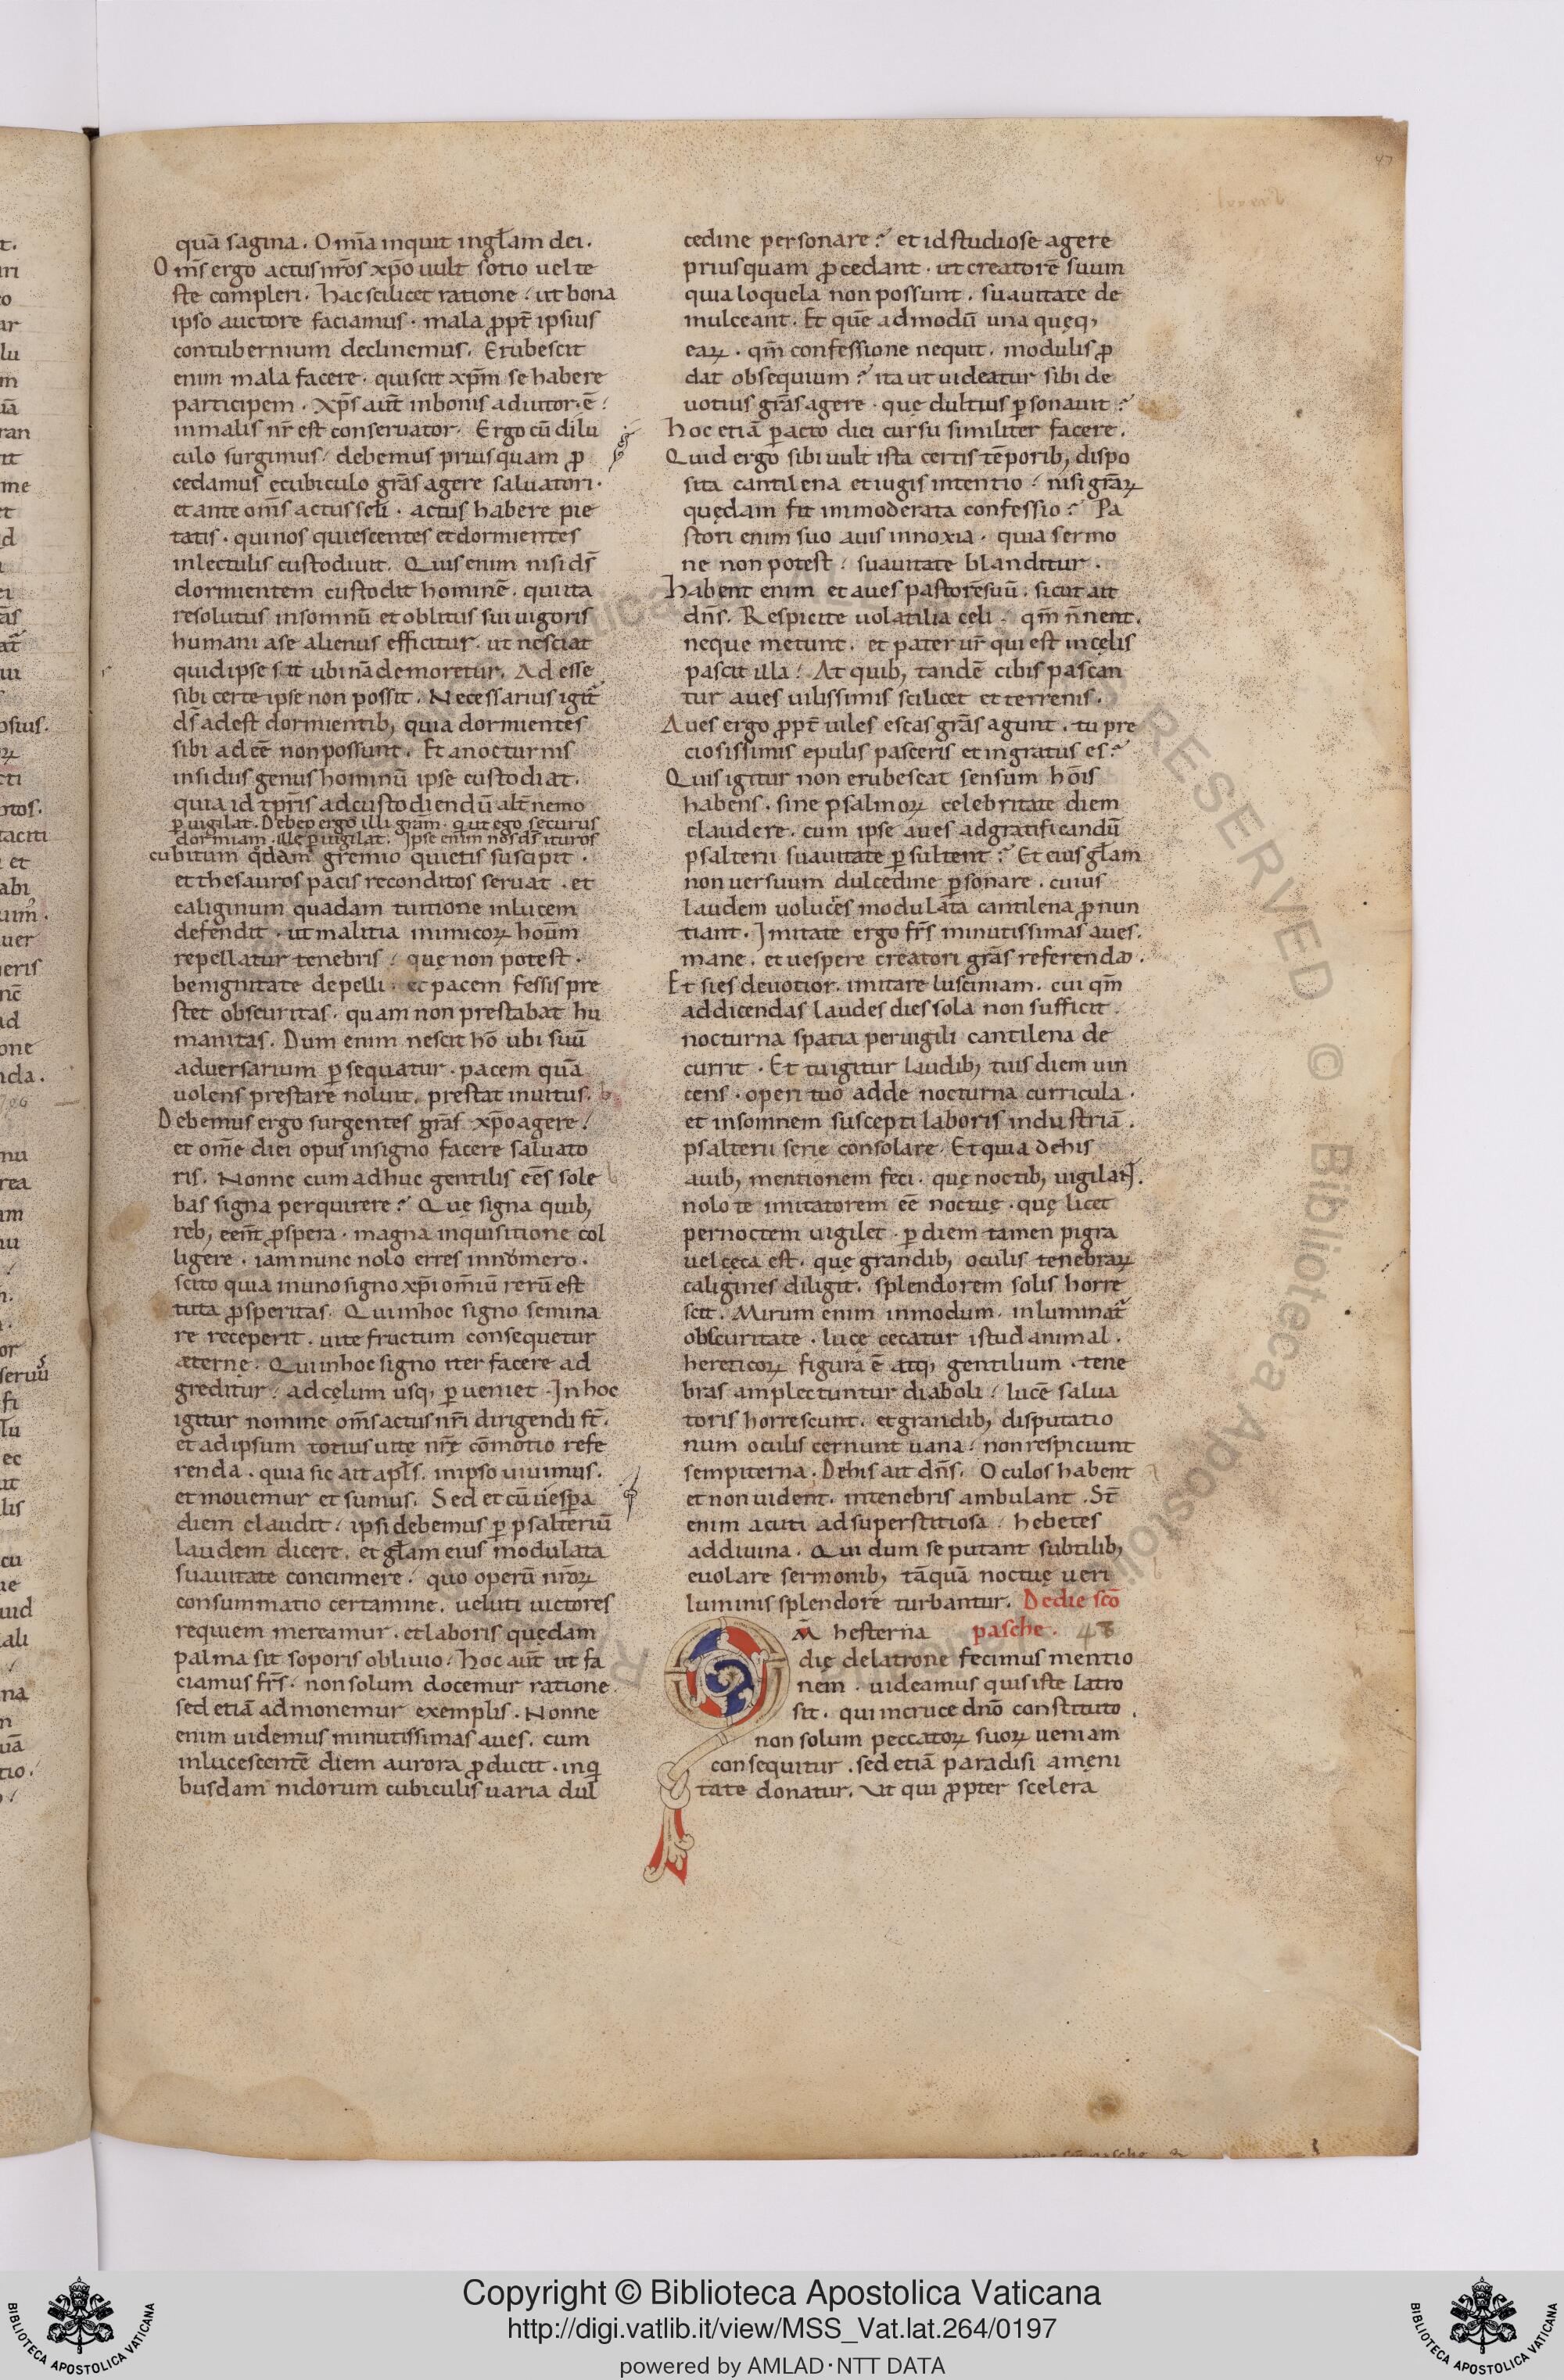 47
quā sagina. Om̄ia inquit in gl̄am dei.
Om̄s ergo actus nr̄os xp̄o uult sotio uel te
ste compleri. hac scilicet ratione. ut bona
ipso auctore faciamus. mala ꝓpt̄ ipsius
contubernium declinemus. Erubescit
enim mala facere. qui scit xp̄m se habere
participem. Xp̄s aut̄ in bonis adiutor. ē.
in malis nr̄ est conseruator. Ergo cū dilu
culo surgimus. debemus prius quam ꝓ
cedamus e cubiculo gr̄as agere saluatori.
et ante om̄s actus sc̄li. actus habere pie
tatis. qui nos quiescentes et dormientes
in lectulis custodiuit. Quis enim nisi ds̄
dormientem custodit hominē. qui ita
resolutus in somnū et oblitus sui uigoris
humani a se alienus efficitur. ut nesciat
quid ipse sit ubinā demoretur. Ad esse
sibi certe ipse non possit. Necessarius igit̄
ds̄ adest dormientib; quia dormientes
sibi ad eē non possunt. Et a nocturnis
insidiis genus hominū ipse custodiat.
quia id tp̄ris ad custodiendū alt̄ nemo
ꝑuigilat. Debeo ergo illi gram̄. q ut ego securus
dormiam. ille ꝑuigilat. Ipse enim nos ds̄ ituros
cubitum qđam gremio quietis suscipit.
et thesauros pacis reconditos seruat. et
caliginum quadam tuitione in lucem
defendit. ut malitia inimicoꝝ hoūm
repellatur tenebris. quę non potest.
benignitate depelli. et pacem fessis pre
stet obscuritas. quam non prestabat hu
manitas. Dum enim nescit hō ubi suū
aduersarium ꝑsequatur. pacem quā
uolens prestare noluit. prestat inuitus.
Debemus ergo surgentes grās xp̄o agere.
et om̄e diei opus in signo facere saluato
ris. Nonne cum adhuc gentilis ee̅s sole
bas signa perquirere? Quę signa quib;
reb; eent̄ ꝓspera. magna inquisitione col
ligere. iam nunc nolo erres in nomero.
scito quia in uno signo xp̄i om̄iū rerū est
tuta ꝓsperitas. Qui in hoc signo semina
re ceperit. uite fructum consequetur
æternę. Qui in hoc signo iter facere ad
greditur. ad cęlum usq; ꝑueniet. In hoc
igitur nomine om̄s actus nr̄i dirigendi st̄.
et ad ipsum totius uitę nr̄ę cōmotio refe
renda. quia sic ait apl̄s. in ipso uiuimus.
et mouemur et sumus. Sed et cū uesꝑa
diem claudit. ipsi debemus ꝑ psalteriū
laudem dicere. et gl̄am eius modulata
suauitate concinnere. quo operū nr̄oꝝ
consummatio certamine. ueluti uictores
requiem mereamur. et laboris quędam
palma sit soporis obliuio. hoc aut̄ ut fa
ciamus fr̄s. non solum docemur ratione.
sed etiā admonemur exemplis. Nonne
enim uidemus minutissimas aues. cum
inlucescentē diem aurora ꝓducit. inq̄
busdam nidorum cubiculis uaria dul
cedine personare? et id studiose agere
prius quam ꝓcedant. ut creatorē suum
quia loquela non possunt. suauitate de
mulceant. Et quē admodū una quęq;
eaꝝ. qm̄ confessione nequit. modulis ꝓ
dat obsequium? ita ut uideatur sibi de
uotius gr̄as agere. quę dultius ꝑsonauit?
hoc etiā ꝑacto diei cursu similiter facere.
Quid ergo sibi uult ista certis tēporib; dispo
sita cantilena et iugis intentio. nisi gr̄aꝝ
quędam fit immoderata confessio? Pa
stori enim suo auis innoxia. quia sermo
ne non potest. suauitate blanditur.
habent enim et aues pastorē suū. sicut ait
dn̄s. Respicite uolatilia celi. qm̄ n̄ nent.
neque metunt. et pater ur̄ qui est in cęlis
pascit illa. At quib; tandē cibis pascan
tur aues uilissimis scilicet et terrenis.
Aues ergo ꝓpt̄ uiles escas gr̄as agunt. tu pre
ciosissimis epulis pasceris et ingratus es?
Quis igitur non erubescat sensum hōis
habens. sine psalmoꝝ celebritate diem
claudere. cum ipse aues ad gratificandū
psalterii suauitate ꝑsultent? Et eius gl̄am
non uersuum dulcedine ꝑsonare. cuius
laudem uolucres modulata cantilena ꝓnun
tiant. Imitate ergo fr̄s minutissimas aues.
mane. et uespere creatori gr̄as referendo.
Et si es deuotior. imitare lusciniam. cui qm̄
ad dicendas laudes dies sola non sufficit.
nocturna spatia peruigili cantilena de
currit. Et tu igitur laudib; tuis diem uin
cens. operi tuo adde nocturna curricula.
et insomnem suscepti laboris industriā.
psalterii serie consolare. Et quia de his
auib; mentionem feci. quę noctib; uigilant.
nolo te imitatorem eē noctuę. quę licet
per noctem uigilet. ꝑ diem tamen pigra
uel cęca est. quę grandib; oculis tenebraꝝ
caligines diligit. splendorem solis horre
scit. Mirum enim in modum. inluminat̄
obscuritate. lucę cecatur istud animal.
hereticoꝝ figura ē atq; gentilium. tene
bras amplectuntur diaboli. lucē salua
toris horrescunt. et grandib; disputatio
num oculis cernunt uana. non respiciunt
sempiterna. De his ait dn̄s. Oculos habent
et non uident. in tenebris ambulant. St̄
enim acuti ad superstitiosa. hebetes
ad diuina. Qui dum se putant subtilib;
euolare sermonib; tāquā noctuę ueri
luminis splendore turbantur. De die scō
Qm̄ hesterna pasche. 48
dię de latrone fecimus mentio
nem. uideamus quis iste latro
sit. qui in cruce dn̄o constituto.
non solum peccatoꝝ suoꝝ ueniam
consequitur. sed etiā paradisi amęni
tate donatur. Ut qui ꝓpter scelera
Copyright © Biblioteca Apostolica Vaticana
http://digi.vatlib.it/view/MSS_Vat.lat.264/0197
powered by AMLAD·NTT DATA
BIBLIOTECA APOSTOLICA VATICANA
BIBLIOTECA APOSTOLICA VATICANA